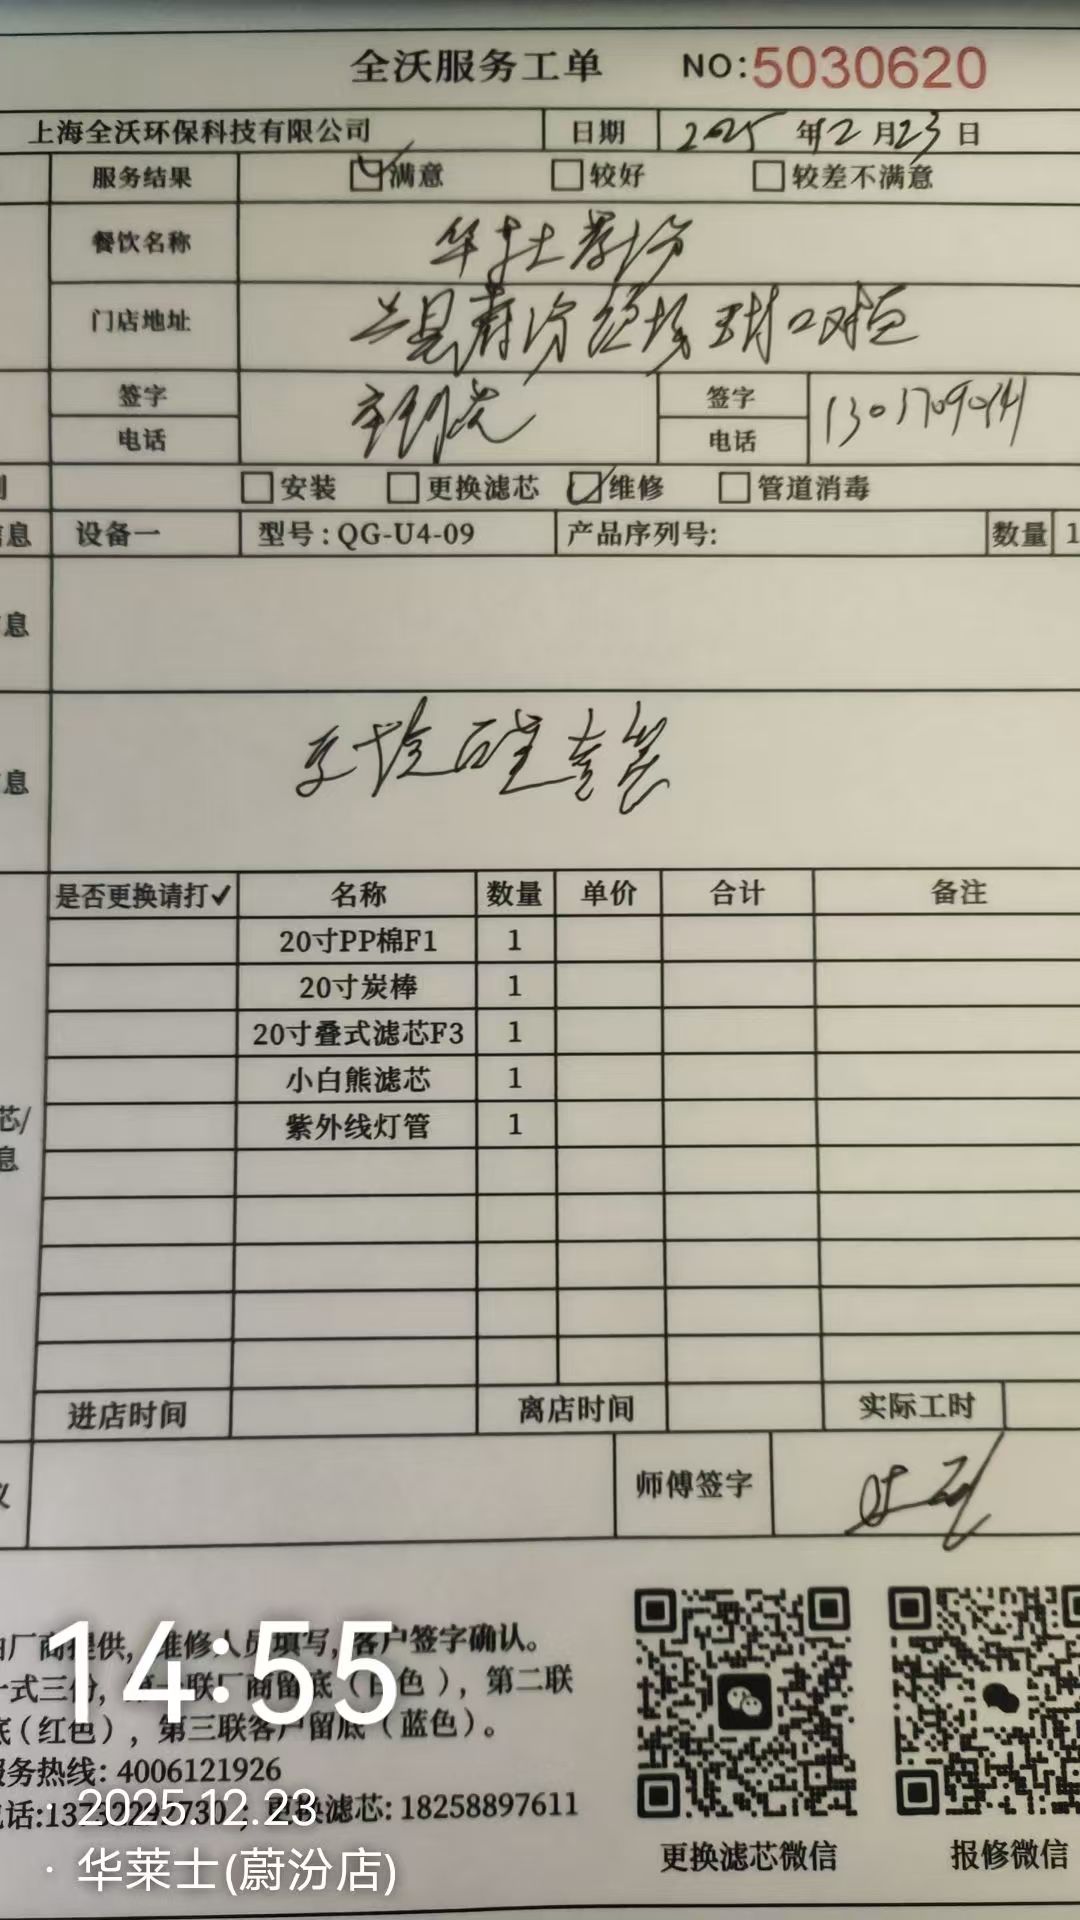 全沃服务工单 NO:5030620
上海全沃环保科技有限公司 日期 2025年12月23日
服务结果 满意 较好 较差不满意
餐饮名称 华莱士蔚汾
门店地址 兴县蔚汾
签字 签字
电话 电话
安装 更换滤芯 维修 管道消毒
息 设备一 型号:QG-U4-09 产品序列号: 数量 1
息
息
是否更换请打✓ 名称 数量 单价 合计 备注
20寸PP棉F1 1
20寸炭棒 1
20寸叠式滤芯F3 1
小白熊滤芯 1
芯/ 紫外线灯管 1
息
进店时间 离店时间 实际工时
师傅签字
厂商提供, 维修人员填写, 客户签字确认。
一式三份, 第一联厂商留底(白色), 第二联
底(红色), 第三联客户留底(蓝色)。
服务热线: 4006121926
更换滤芯: 18258897611
更换滤芯微信 报修微信
14:55
2025.12.23
· 华莱士(蔚汾店)